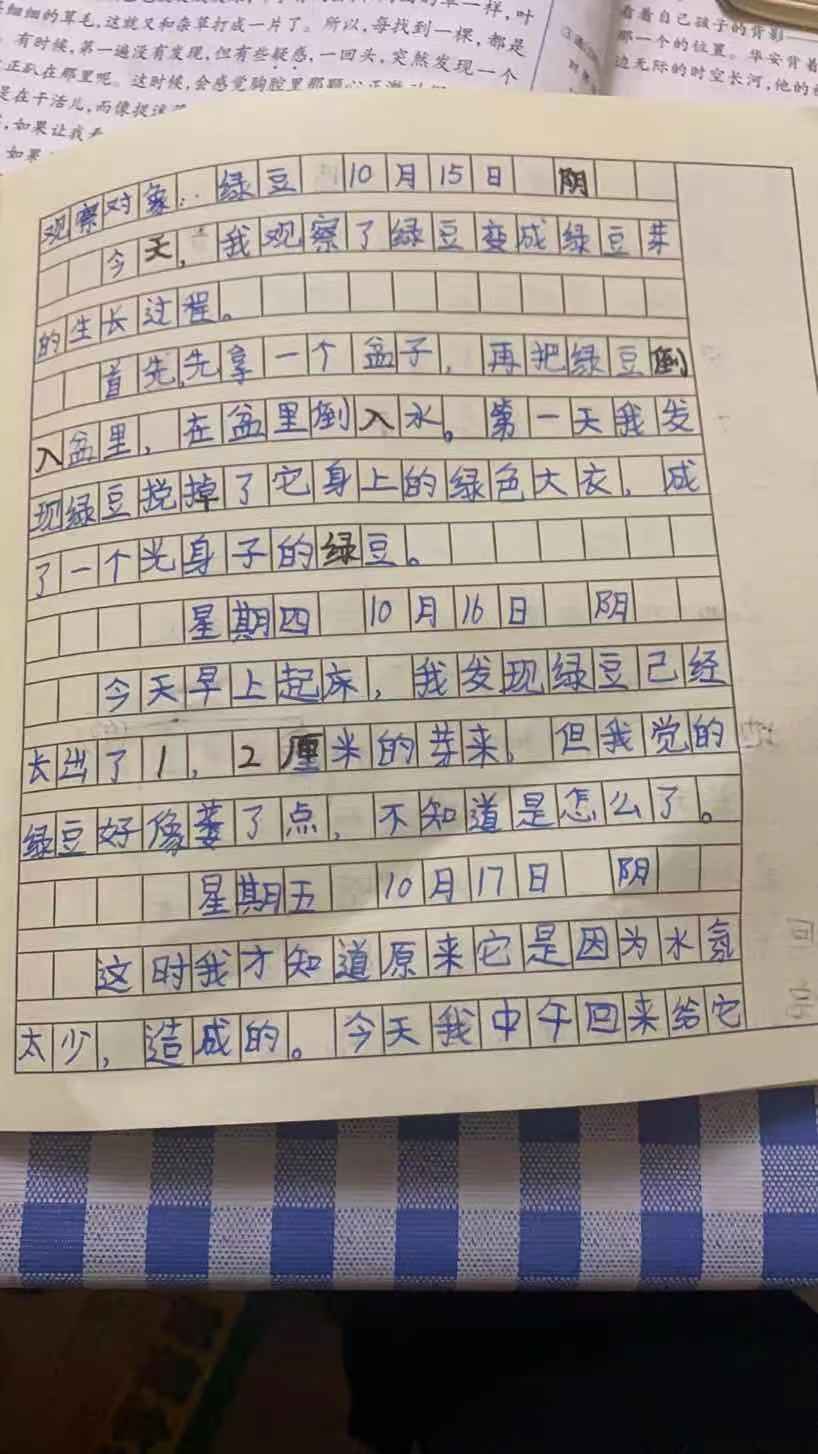 细细的草毛,这就又和杂草打成一片了。所以,每找到一棵,都是
有时候,第一遍没有发现,但有些疑惑,一回头,突然发现一个
正趴在那里呢。这时候,会感觉胸腔里那颗心正激
是在干活儿,而像捉迷
如果让我
如果
看着自己孩子的背影
那一个的位置。华安背着
边无际的时空长河,他的
观察对象:绿豆 10月15日 阴
今天,我观察了绿豆变成绿豆芽
的生长过程。
首先先拿一个盆子,再把绿豆倒
入盆里,在盆里倒入水。第一天我发
现绿豆挩掉了它身上的绿色大衣,成
了一个光身子的绿豆。
星期四 10月16日 阴
今天早上起床,我发现绿豆已经
长出了1,2厘米的芽来。但我觉的
绿豆好像蒌了点,不知道是怎么了。
星期五 10月17日 阴
这时我才知道原来它是因为水氛
太少,造成的。今天我中午回来给它